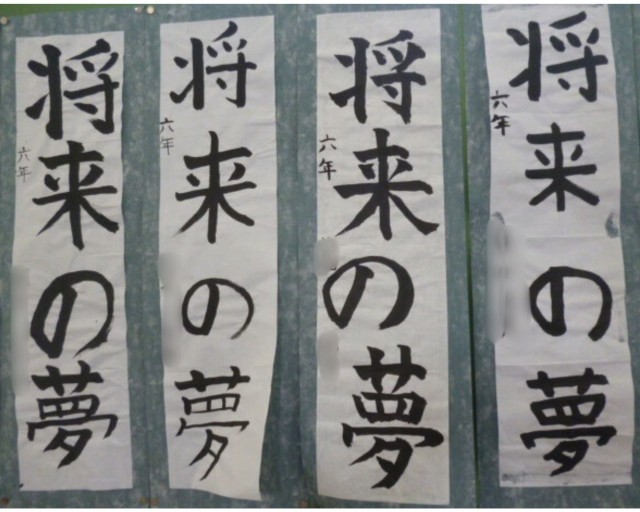 将来の夢
六年
将来の夢
六年
将来の夢
六年
将来の夢
六年